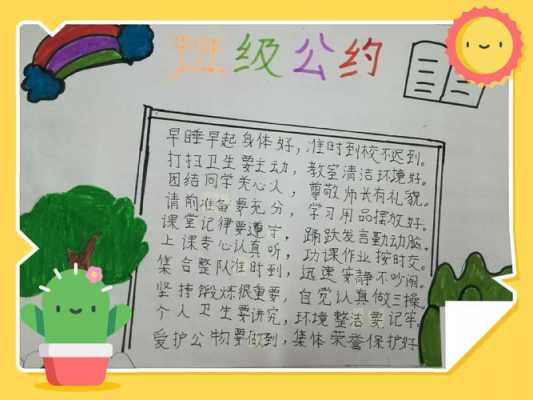 班级公约
早睡早起身体好，准时到校不迟到。
打扫卫生要主动，教室清洁环境好。
团结同学关心人，尊敬师长有礼貌。
请前准备要充分，学习用品摆放好。
课堂记律要遵守，踊跃发言勤动脑。
上课专心认真听，功课作业按时交。
集合整队准时到，迅速安静不吵闹。
坚持锻炼很重要，自觉认真做三操
个人卫生要讲究，环境整洁要记牢。
爱护公物要做到，集体荣誉保护好